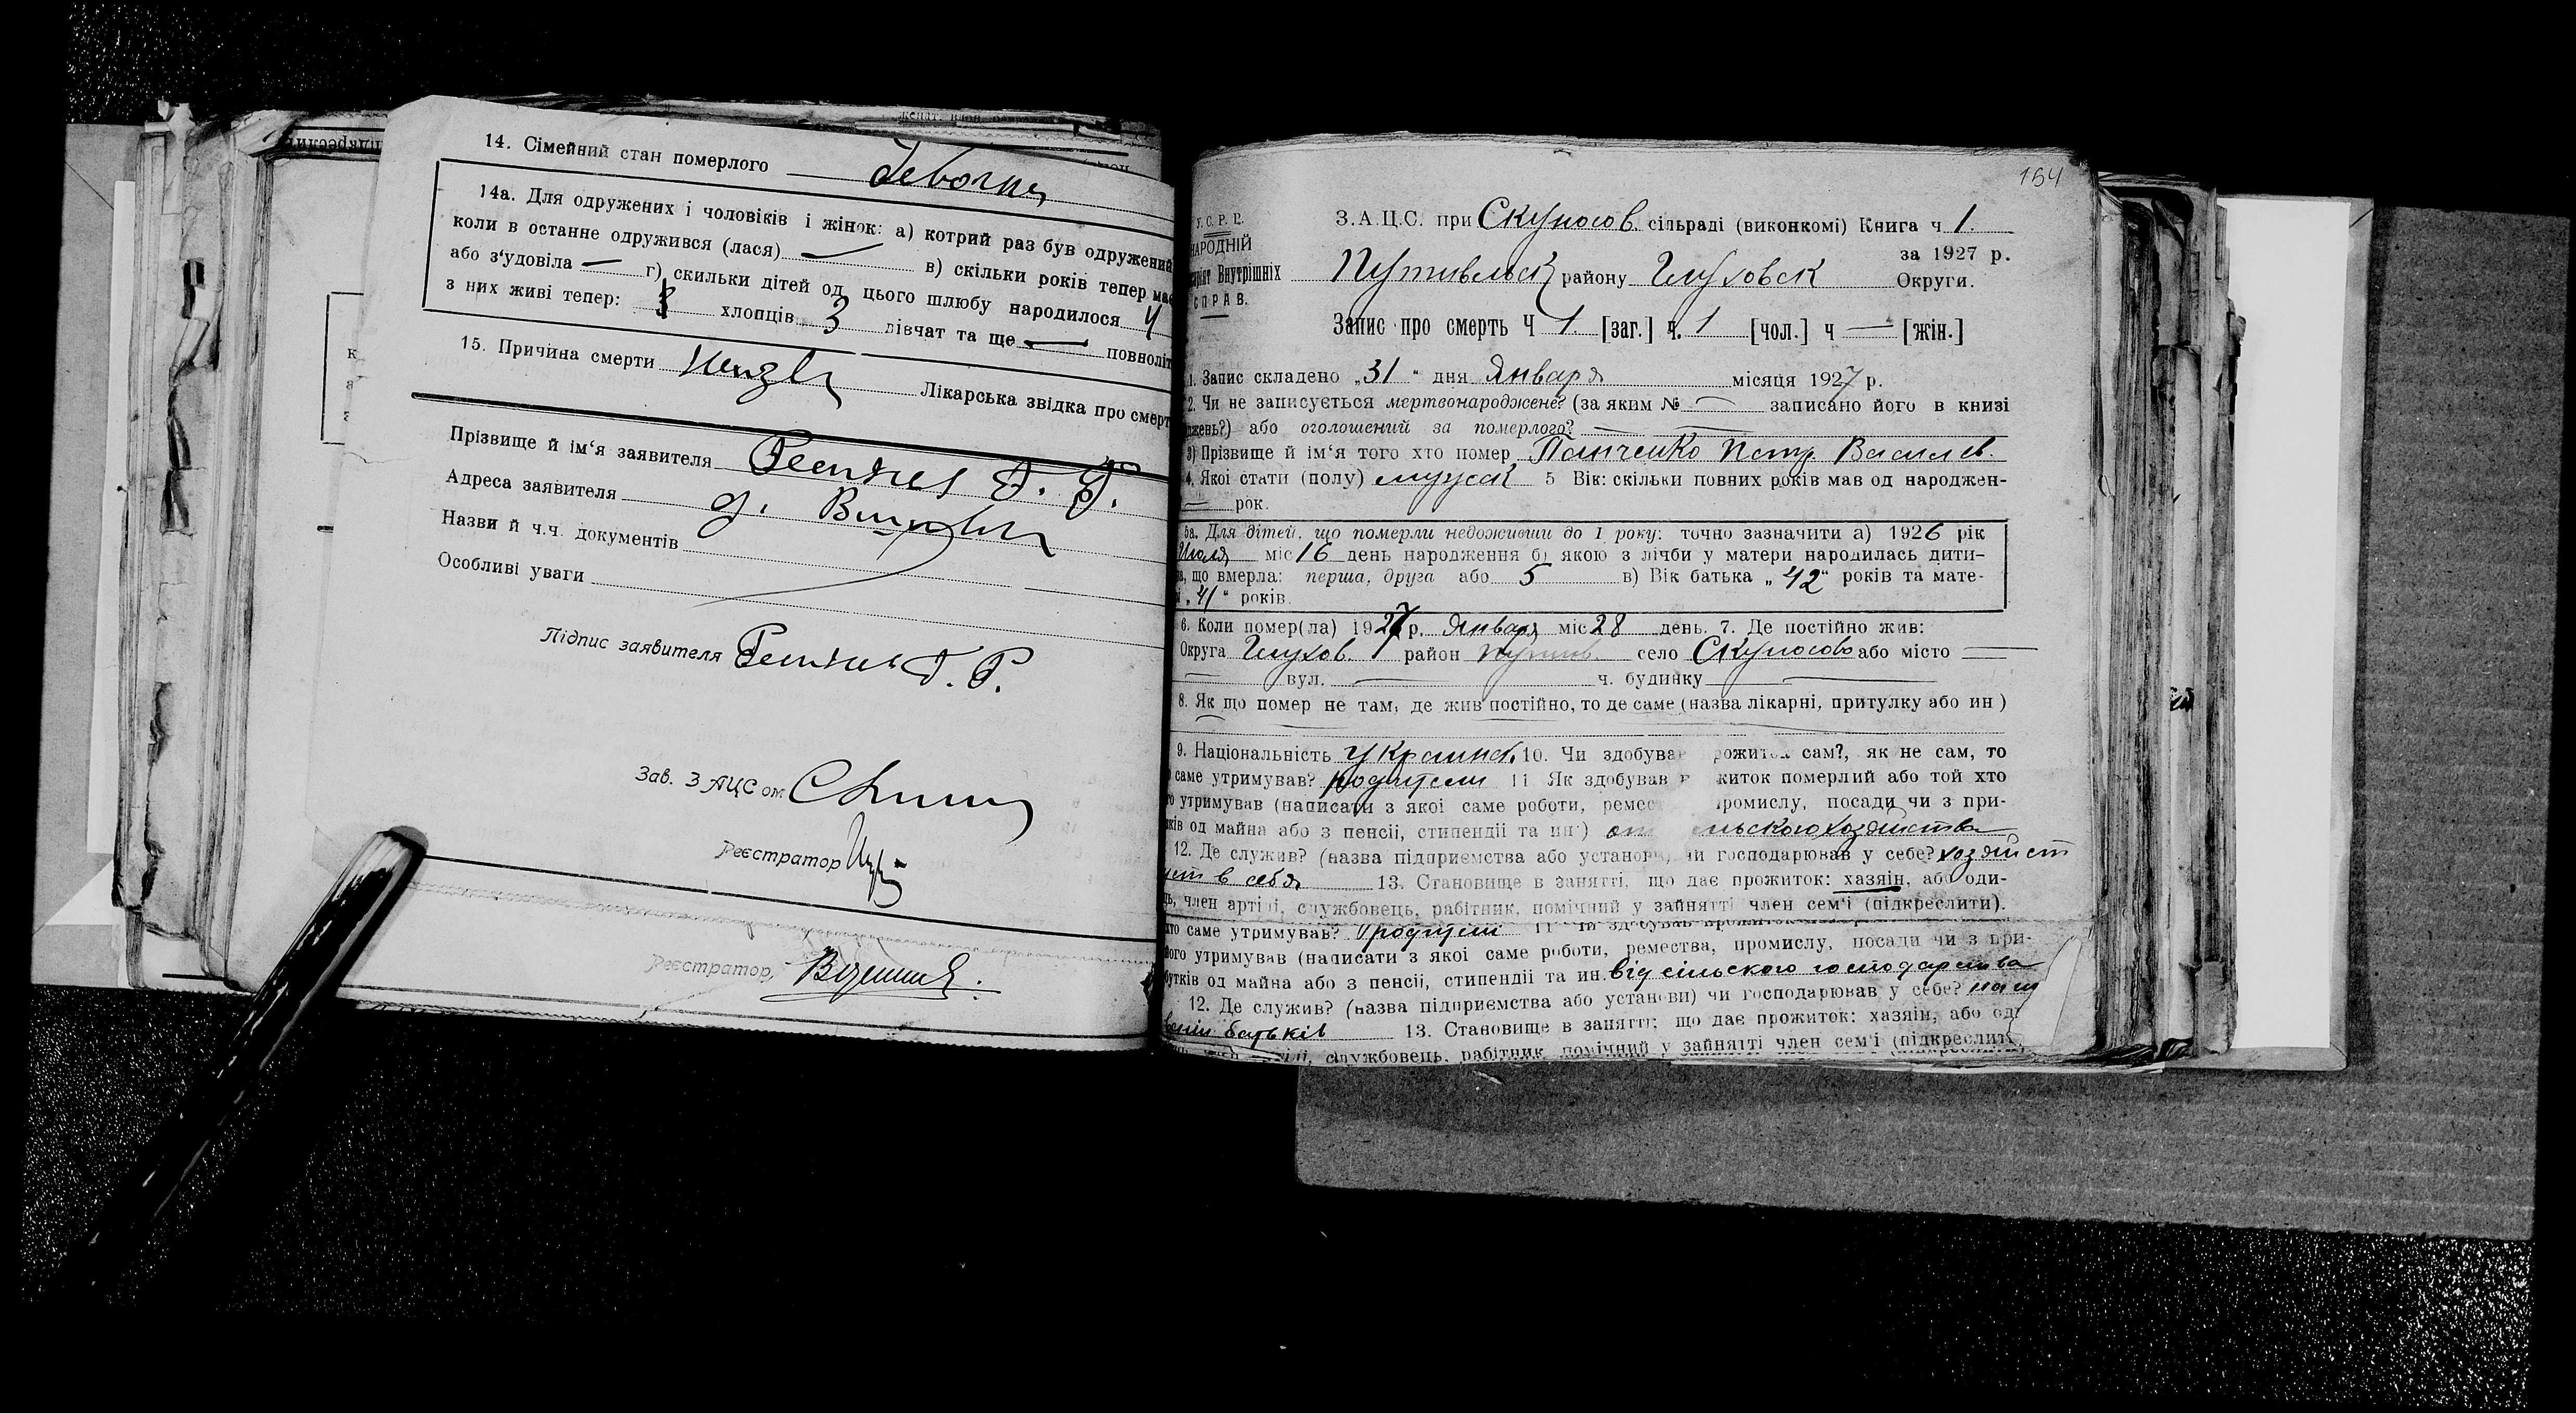 14. Сімейний стан померлого
14а. Для одружених і чоловіків і жінок: а) котрий раз був одружений
коли в останне одружився (лася) — в) скільки років тепер має
або з'удовіла — г) скильки дітей од цього шлюбу народилося 4
з них живі тепер: хлопців 3 дівчат та ще — повноліт
15. Причина смерти Лікарська звідка про смерт
Прізвище й ім'я заявителя
Адреса заявителя
Назви й ч.ч. документів
Особливі уваги
Підпис заявителя
Зав. ЗАЦСом
Реєстратор
Реєстратор,
164
У.С.Р.Р.
НАРОДНІЙ
Внутрішніх
СПРАВ.
З.А.Ц.С. при Скуносов. сільраді (виконкомі) Книга ч 1.
за 1927 р.
Путивльск району Глуховск Округи.
Запис про смерть Ч 1. [заг.] ч. 1 [чол.] ч — [жін.]
1. Запис складено „31“ дня Января місяця 1927 р.
2. Чи не записується мертвонароджене? (за яким № — записано його в книзі
джень?) або оголошений за померлого? —
3) Прізвище й ім'я того хто помер Панченко Петр Василев.
4. Якої стати (полу) мужск 5 Вік: скільки повних років мав од народжен-
— рок.
5а. Для дітей, що померли недоживши до 1 року: точно зазначити а) 1926 рік
Июля міс 16 день народження б) якою з лічби у матери народилась дити-
а, що вмерла: перша, друга або 5 в) Вік батька „42“ років та мате-
і „41“ років.
6. Коли помер(ла) 1927 р. Января міс 28 день. 7. Де постійно жив:
Округа Глухов. район Путив. село Скуносово або місто —
— вул. — ч. будинку —
8. Як що помер не там, де жив постійно, то де саме (назва лікарні, притулку або ин)
—
9. Національність Украинск. 10. Чи здобував прожиток сам?, як не сам, то
саме утримував? родители 11 Як здобував житок померлий або той хто
го утримував (написати з якої саме роботи, ремес промислу, посади чи з при-
ків од майна або з пенсії, стипендії та ин.) от сельского хозяйства
12. Де служив? (назва підприємства або установи) чи господарював у себе? хозяйст
в себя 13. Становище в занятті, що дає прожиток: хазяїн, або оди-
ць, член артілі, службовець, рабітник, помічний у зайнятті член сем'ї (підкреслити).
хто саме утримував? родители 11
його утримував (написати з якої саме роботи, ремества, промислу, посади чи з при-
бутків од майна або з пенсії, стипендії та ин. від сільского господарства
12. Де служив? (назва підприємства або установи) чи господарював у себе?
батьків 13. Становище в занятті; що дає прожиток: хазяїн, або оди
службовець, рабітник, помічний у зайнятті член сем'ї (підкреслити)